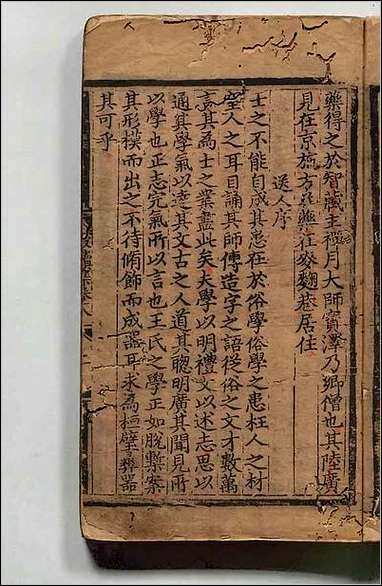 藥得之於智藏主禪月大師寶澤乃鄉僧也其陸廣
見在京施方幷藥在麥麴巷居住
送人序
士之不能自成其患在於俗學俗學之患枉人之材
窒人之耳目誦其師傳造字之語從俗之文才數萬
言其爲士之業盡此矣夫學以明禮文以述志思以
通其學氣以達其文古之人道其聰明廣其聞見所
以學也正志完氣所以言也王氏之學正如脫槧案
其形模而出之不待脩飾而成器耳求爲桓璧彝器
其可乎